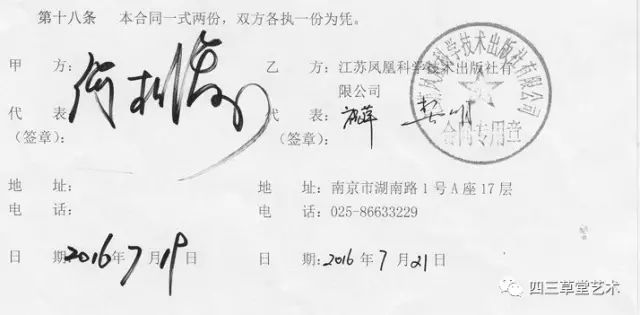 第十八条 本合同一式两份，双方各执一份为凭。
甲 方： 乙 方：江苏凤凰科学技术出版社有
限公司
代 表 代 表 祝萍 樊明
（签章）： （签章）：
凤凰科学技术出版社有限公司
合同专用章
地 址： 地 址：南京市湖南路 1 号 A 座 17 层
电 话： 电 话：025-86633229
日 期：2016 年 7 月 19 日 日 期：2016 年 7 月 21 日
四三草堂艺术